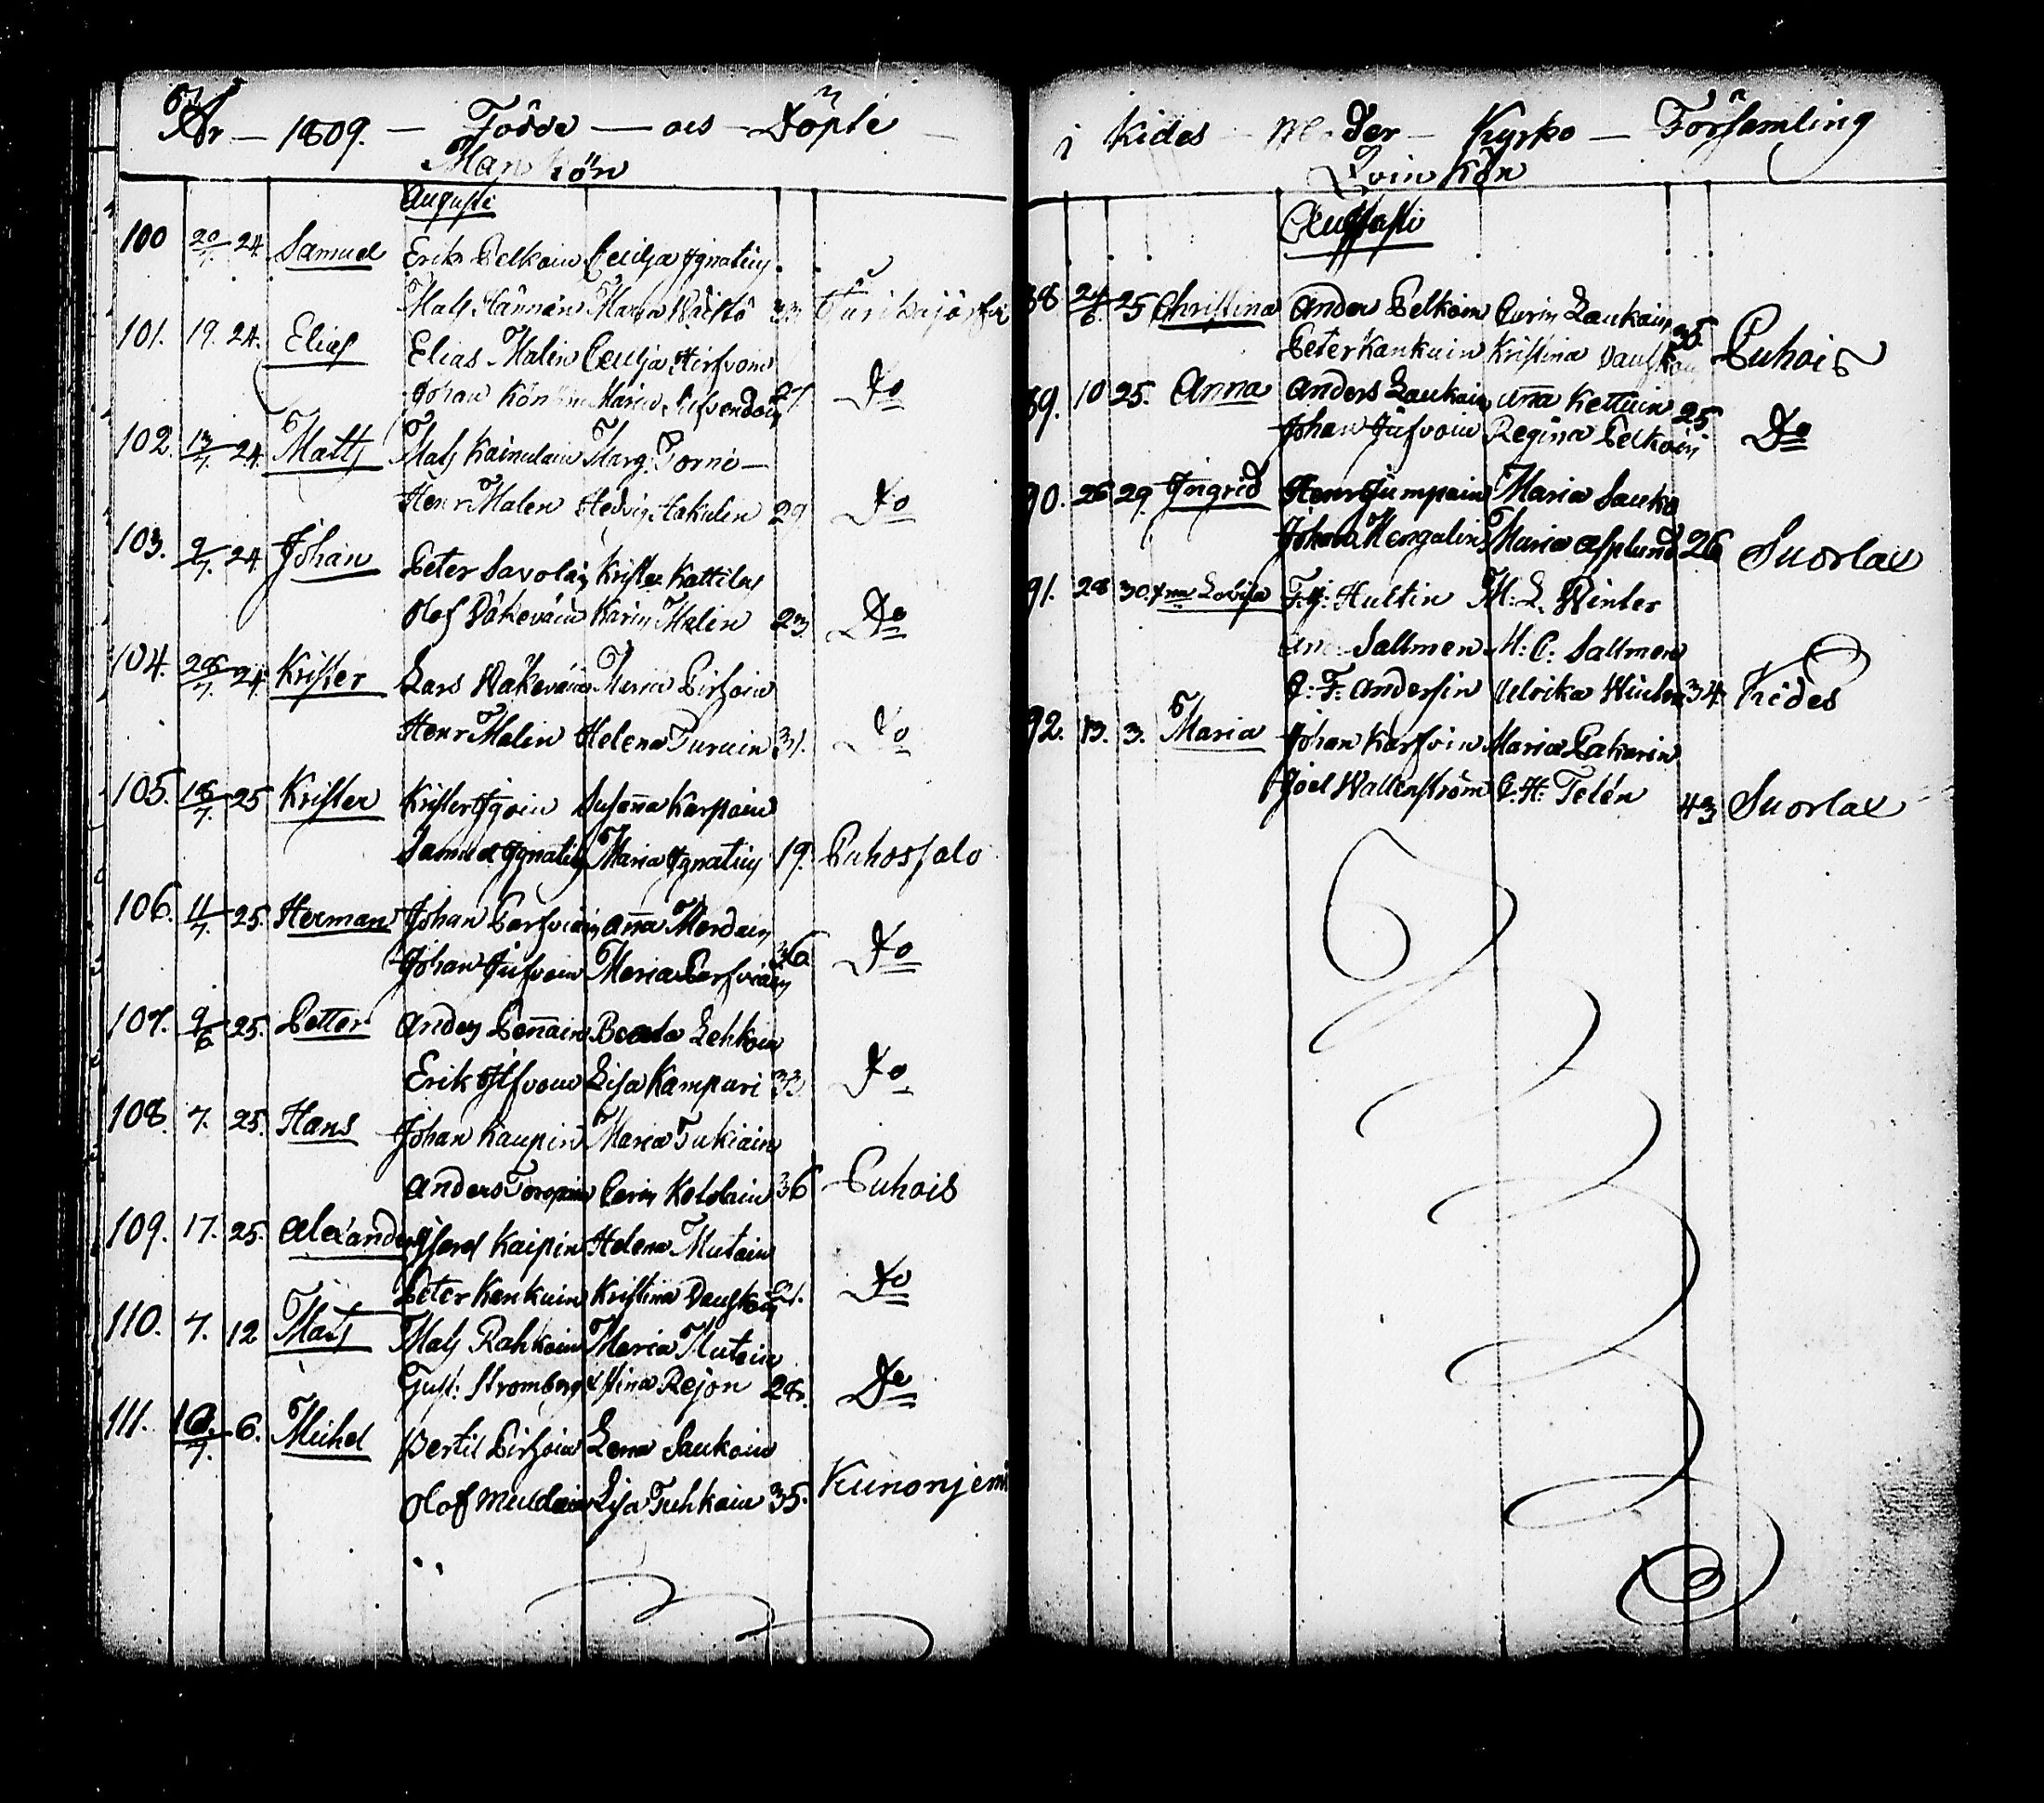 År – 1809. – Födde – och – Döpte
Man Kön
Augusti
100 20/7. 24 Samuel Erik Pelkoin Cecilja Ignatius
Mats Hännin Maria Wäistö 33 Purikajärfvi
101. 19. 24. Elias Elias Malin Cecilja Hirfvoin
Johan Maria 27. Do
102. 13/7. 24. Matts Mats Kainulain Marg. Torni
Henr Malen Hedvig Hakulin 29 Do
103. 9/7. 24. Johan Peter Savolain Krister Kattilus
Olof Väkeväin Karin Malin 23. Do
104. 28/7. 24. Krister Lars Wäkeväin Maria Pirhoin
Henr Malin Helena Turuin 31. Do
105. 18/7. 25 Krister Krister Igoin Susanna Karpain
Samuel Ignatius Maria Ignatius 19. Puhossalo
106. 11/7. 25. Herman Johan Parfviain Anna Merdain
Johan Jufvoin Maria Parfviain 36. Do
107. 9/6. 25. Petter Anders Pennain Beata Lehkoin
Erik Lisa Kampuri 33. Do
108. 7. 25. Hans Johan Kaupin Maria Tukiain
Anders Toropain Carin Kololain 36 Puhois
109. 17. 25. Alexander Israel Kaipin Helena Mutain
Peter Kankuin Kristina Vauhkon 21. Do
110. 7. 12 Mats Mats Rahkoin Maria Mutain
Gust: Stromberg Stina Rejon 28. Do
111. 16/7. 6. Michel Bertil Pirhoin Lena Saukoin
Olof Muldain Lisa Tuhkain 35. Kunonjemi
i Kides – Moder – Kyrko – Församling
Qvin Kön
Augusti
88 24/6. 25 Christina Ander Pelkoin Carin Laukain
Peter Kankuin Kristina Vauhkon 35. Puhois
89. 10 25. Anna Anders Laukain Anna Kettuin 25
Johan Jufvoin Regina Pelkoin Do
90. 26 29. Ingrid Henr Jumpain Maria Sauko
Johan Mengalin Maria Asplund 26 Suorlax
91. 28 30. Anna Lovisa F. J: Hultin M: L. Winter
And: Sallmen M: C: Sallmen
C: F: Andersin Ulrika Winter 34. Kides
92. 13. 3. Maria Johan Karfvin Maria Pakarin
Joel Wallenström C. H: Telén 43 Suorlax